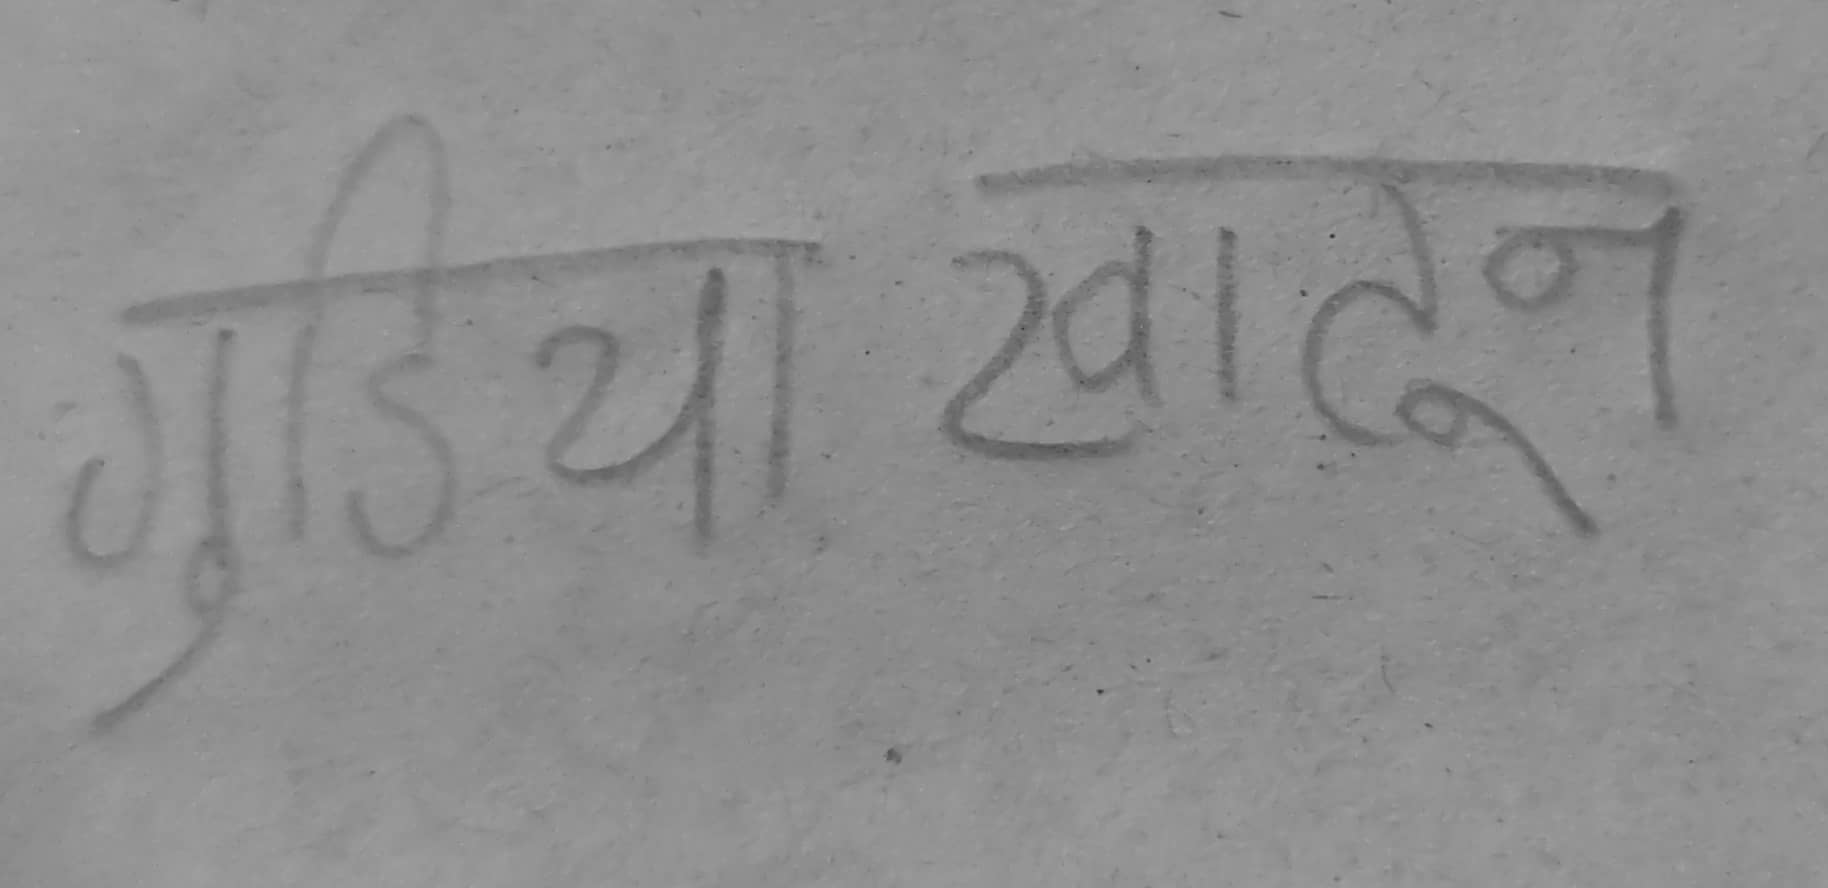 गुडिया खादून